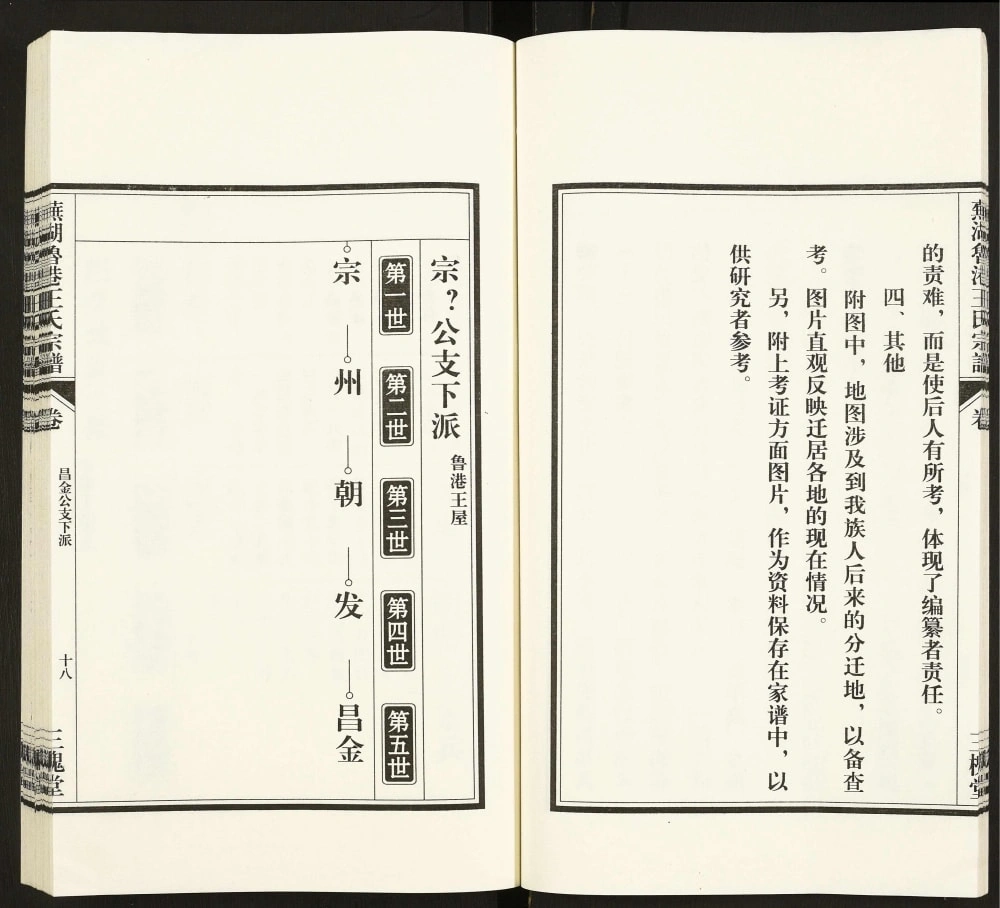 的责难，而是使后人有所考，体现了编纂者责任。
四、其他
附图中，地图涉及到我族人后来的分迁地，以备查
考。图片直观反映迁居各地的现在情况。
另，附上考证方面图片，作为资料保存在家谱中，以
供研究者参考。
蕪湖魯港王氏宗譜
卷
三槐堂
宗？公支下派
鲁港王屋
第一世
第二世
第三世
第四世
第五世
宗
州
朝
发
昌金
蕪湖魯港王氏宗譜
卷
昌金公支下派
十八
三槐堂